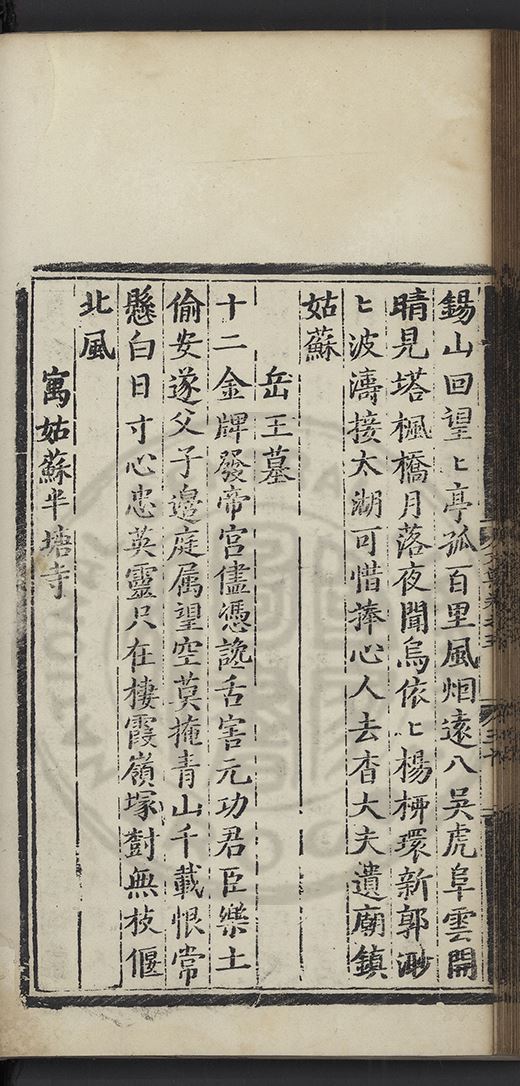 錫山回望〻亭孤百里風烟遠入吳虎阜雲開
晴見塔楓橋月落夜聞烏依〻楊栁環新郭渺
〻波濤接太湖可惜捧心人去杳大夫遺廟鎮
姑蘇
岳王墓
十二金牌發帝宮儘憑讒舌害元功君臣樂土
偷安遂父子邊庭属望空莫掩青山千載恨常
懸白日寸心忠英靈只在棲霞嶺塚對無枝偃
北風
寓姑蘇半塘寺